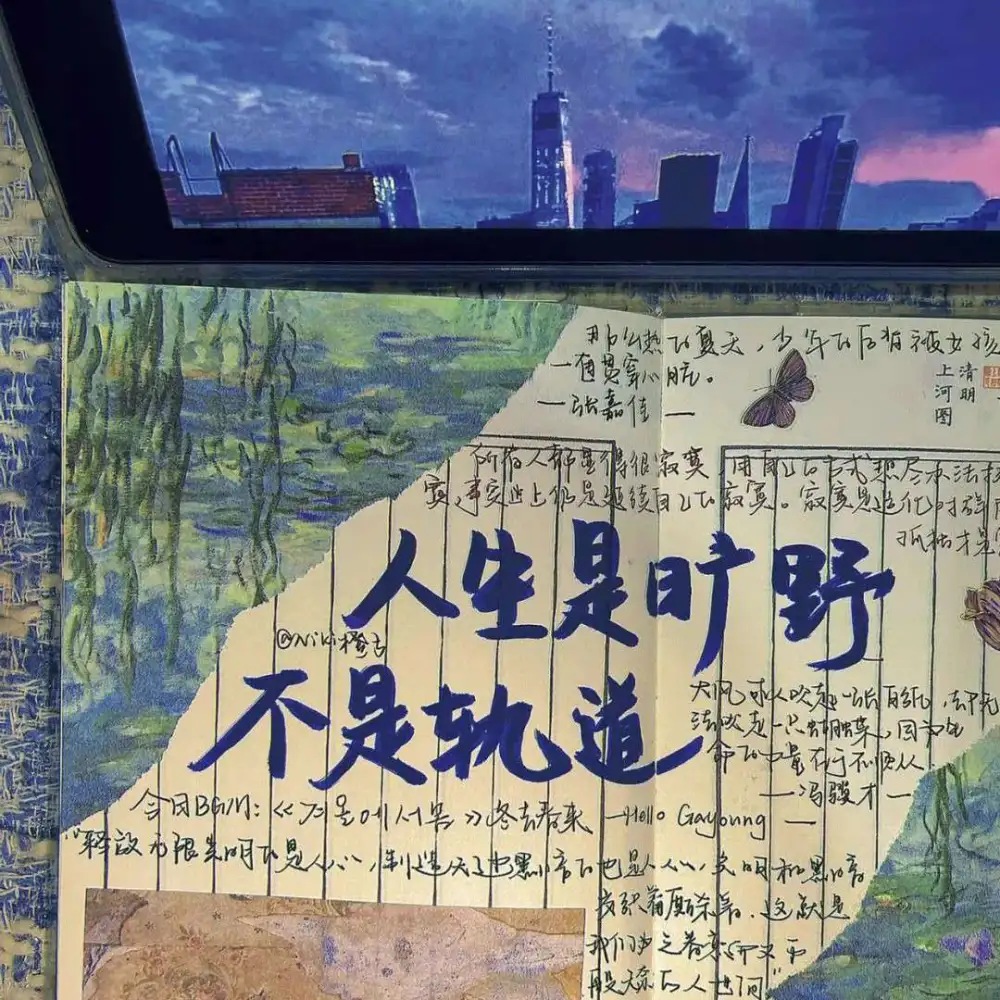 那么热的夏天，少年的后背被女孩
一直贯穿心脏。
—张嘉佳—
清明
上河图
所有人都显得很寂寞，用自己的方式想尽办法排
寞，事实上仍是延续自己的寂寞。寂寞是造化对群
孤独才是
人生是旷野
@Niki橙子
不是轨道
大风可以吹起一张白纸，却无
法吹走一只蝴蝶，因为生
命的力量在于不顺从。
—冯骥才—
今日BGM：《겨울에서 봄》冬去春来 —Hello Gayoung—
"释放无限光明的是人心，制造无边黑暗的也是人心，光明和黑暗
交织着厮杀着，这就是
我们为之眷恋而又万
般无奈的人世间"